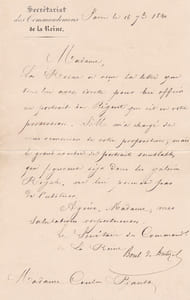 Secrétariat
des Commandements
de la Reine.
Paris, le 16 7bre 18
Madame,
La Reine a reçu la lettre que
vous lui avez écrite pour lui offrir
un portrait du Régent qui est en votre
possession. Elle m'a chargé de
vous remercier de votre proposition, mais
le grand nombre de portraits semblables
qui figurent déjà dans les galeries
Royales, ne lui permet pas
de l'utiliser.
Agréez, Madame, mes
salutations respectueuses.
Le Secrétaire des Commandts
de La Reine
Madame